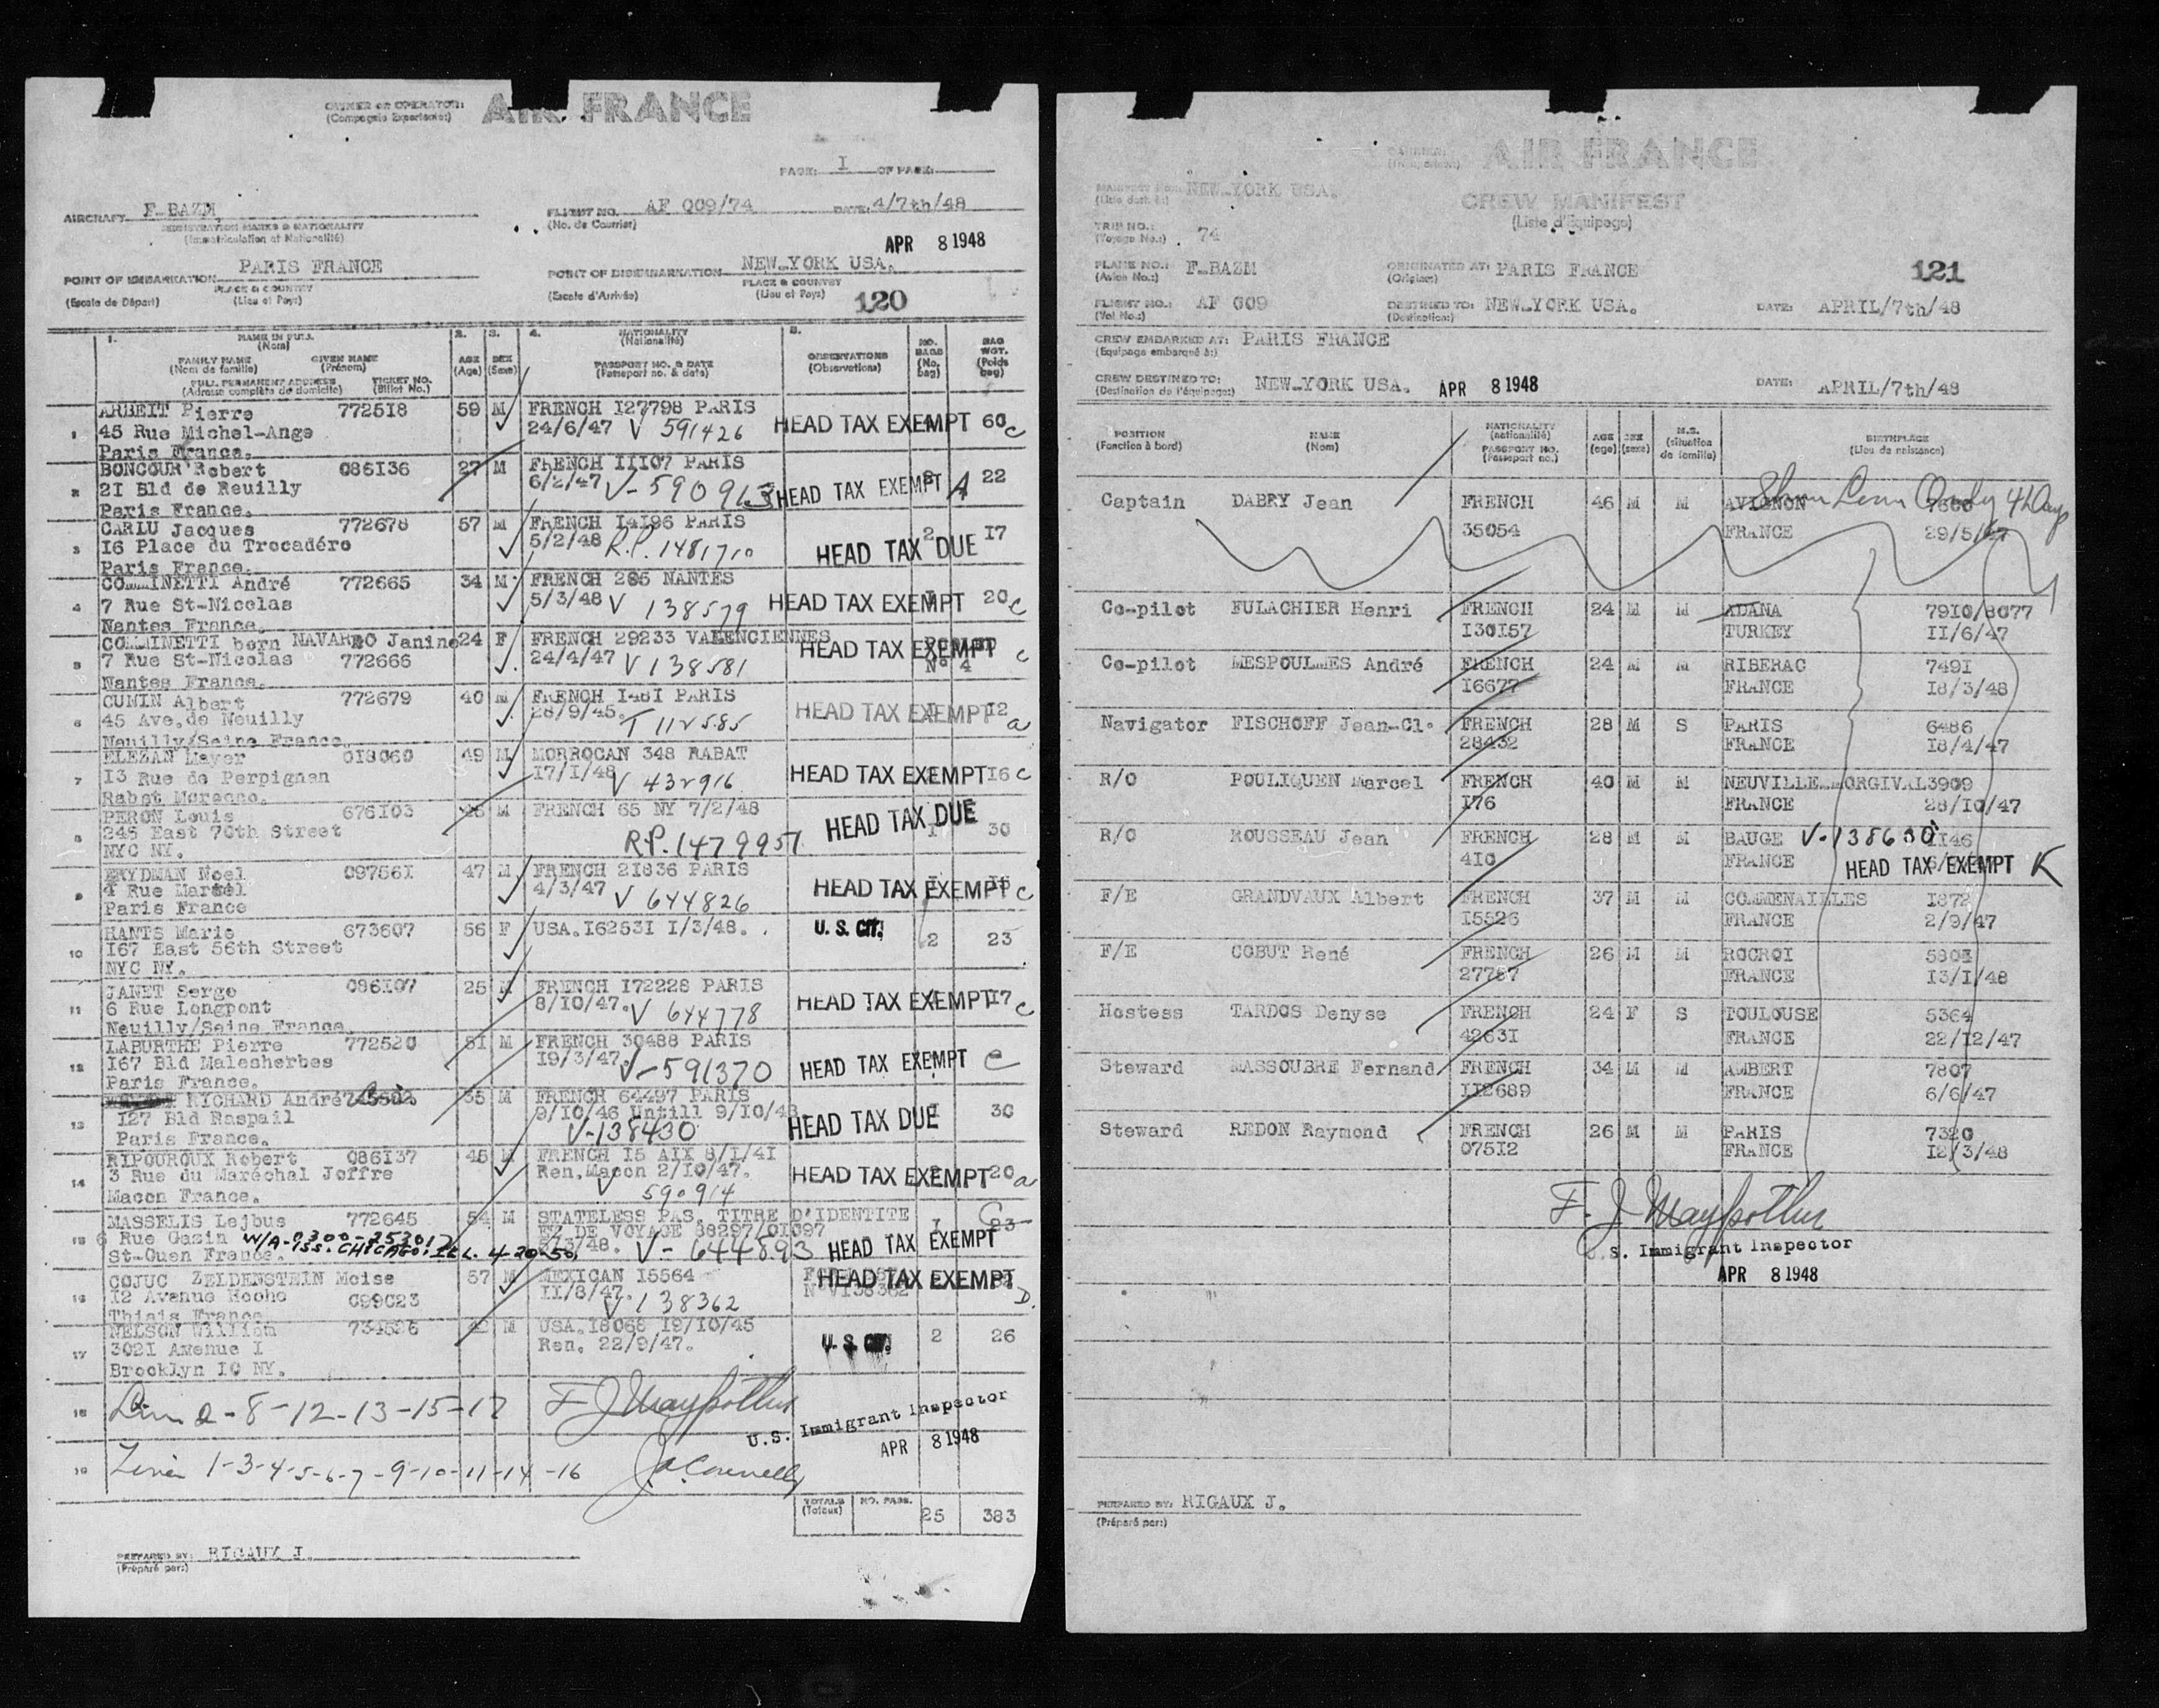 OWNER OR OPERATOR: AIR FRANCE
(Compagnie Exportatrice:)
PAGE: I OF PAGE:
AIRCRAFT F-BAZM FLIGHT NO. AF 009/74 DATE: 4/7th/48
REGISTRATION MARKS & NATIONALITY (No. de Courrier)
(Immatriculation et Nationalité) APR 8 1948
POINT OF EMBARKATION PARIS FRANCE POINT OF DISEMBARKATION NEW-YORK USA.
PLACE & COUNTRY PLACE & COUNTRY
(Escale de Départ) (Lieu et Pays) (Escale d'Arrivée) (Lieu et Pays) 120
1. NAME IN FULL (Nom) 2. 3. 4. NATIONALITY (Nationalité) 5.
FAMILY NAME (Nom de famille) GIVEN NAME (Prénom) AGE (Age) SEX (Sexe) PASSPORT NO. & DATE (Passeport no. & date) OBSERVATIONS (Observations) NO. BAGS (No. bag) BAG WGT. (Poids bag)
FULL PERMANENT ADDRESS (Adresse complète de domicile) TICKET NO. (Billet No.)
1 ARBEIT Pierre 772518 59 M FRENCH I27798 PARIS
45 Rue Michel-Ange 24/6/47 V 591426 HEAD TAX EXEMPT 60 c
Paris France.
2 BONCOUR Robert 086I36 27 M FRENCH III07 PARIS
2I Bld de Reuilly 6/2/47 V-590913 HEAD TAX EXEMPT A 22
Paris France.
3 CARLU Jacques 772678 57 M FRENCH I4I96 PARIS
I6 Place du Trocadéro 5/2/48 R.P. 1481710 HEAD TAX DUE 2 I7
Paris France.
4 COMMINETTI André 772665 34 M FRENCH 285 NANTES
7 Rue St-Nicolas 5/3/48 V 138579 HEAD TAX EXEMPT 20 c
Nantes France.
5 COMMINETTI born NAVARRO Janine 24 F FRENCH 29233 VALENCIENNES
7 Rue St-Nicolas 772666 24/4/47 V 138581 HEAD TAX EXEMPT N° 4 c
Nantes France.
6 CUNIN Albert 772679 40 M FRENCH I48I PARIS
45 Ave.de Neuilly 28/9/45. T 112585 HEAD TAX EXEMPT I2 a
Neuilly/Seine France.
7 ELEZAN Mayer 0I8060 49 M MORROCAN 348 RABAT
I3 Rue de Perpignan I7/I/48 V 432916 HEAD TAX EXEMPT I6 c
Rabat Morocco.
8 PERON Louis 676I03 M FRENCH 65 NY 7/2/48
245 East 70th Street HEAD TAX DUE I 30
NYC NY. R.P. 1479957
9 FRYDMAN Noel 09756I 47 M FRENCH 2I836 PARIS
4 Rue Martel 4/3/47 V 644826 HEAD TAX EXEMPT c
Paris France
10 HANTS Marie 673607 56 F USA.I6253I I/3/48. U.S. CIT. 2 23
I67 East 56th Street
NYC NY.
11 JANET Serge 086I07 25 M FRENCH I72228 PARIS
6 Rue Longpont 8/I0/47. V 644778 HEAD TAX EXEMPT I7 c
Neuilly/Seine France.
12 LABURTHE Pierre 772520 5I M FRENCH 30488 PARIS
I67 Bld Malesherbes I9/3/47. V-591370 HEAD TAX EXEMPT C
Paris France.
13 RICHARD André 35 M FRENCH 64497 PARIS
I27 Bld Raspail 9/I0/46 Untill 9/I0/48 HEAD TAX DUE I 30
Paris France. V-138430
14 RIPOUROUX Robert 086I37 45 M FRENCH I5 AIX 8/I/4I
3 Rue du Maréchal Joffre Ren.Macon 2/I0/47. HEAD TAX EXEMPT 2 20 a
Macon France. V 590914
15 MASSELIS Lejbus 772645 54 M STATELESS PAS. TITRE D'IDENTITE C
6 Rue Gazin W/A-0300-253017 ET DE VOYAGE 88297/0I097 23
St-Ouen France. ISS. CHICAGO. ILL. 4-20-50 5/3/48. V-644893 HEAD TAX EXEMPT
16 COJUC ZELDENSTEIN Moise 37 M MEXICAN I5564 HEAD TAX EXEMPT
I2 Avenue Hoche 099023 II/8/47. V 138362 N° VI38362 D.
Thiais France
17 NELSON William 734526 42 M USA.I8068 I9/I0/45
302I Avenue I Ren. 22/9/47. U.S. CIT. 2 26
Brooklyn I0 NY.
18 Lines 2-8-12-13-15-17 F J Mayfrothur
U.S. Immigrant Inspector
APR 8 1948
19 Lines 1-3-4-5-6-7-9-10-11-14-16 J.A. Connelly
TOTALS (Totaux) NO. PASS. 25 383
PREPARED BY: RIGAUX J.
(Préparé par:)
CARRIER: AIR FRANCE
MANIFEST NEW-YORK USA.
CREW MANIFEST
(Liste d'Equipage)
TRIP NO.: 74
(Voyage No.:)
PLANE NO.: F-BAZM ORIGINATED AT: PARIS FRANCE 121
(Avion No.:) (Origine:)
FLIGHT NO.: AF 009 DESTINED TO: NEW-YORK USA. DATE: APRIL/7th/48
(Vol No.:) (Destination:)
CREW EMBARKED AT: PARIS FRANCE
(Equipage embarqué à:)
CREW DESTINED TO: NEW-YORK USA. APR 8 1948 DATE: APRIL/7th/48
(Destination de l'équipage:)
POSITION (Fonction à bord) NAME (Nom) NATIONALITY (nationalité) PASSPORT NO. (Passeport no.) AGE (age) SEX (sexe) M.S. (situation de famille) BIRTHPLACE (Lieu de naissance)
Captain DABRY Jean FRENCH 46 M M AVIGNON
35054 FRANCE 29/5/47
Co-pilot FULACHIER Henri FRENCH 24 M M ADANA 79I0/8077
I30I57 TURKEY II/6/47
Co-pilot MESPOULMES André FRENCH 24 M M RIBERAC 749I
I6677 FRANCE I8/3/48
Navigator FISCHOFF Jean-Cl. FRENCH 28 M S PARIS 6486
28432 FRANCE I8/4/47
R/O POULIQUEN Marcel FRENCH 40 M M NEUVILLE MORGIVAL 3909
I76 FRANCE 28/I0/47
R/O ROUSSEAU Jean FRENCH 28 M M BAUGE V-138630 II46
4I0 FRANCE HEAD TAX EXEMPT K
F/E GRANDVAUX Albert FRENCH 37 M M COMMENAILLES I872
I5526 FRANCE 2/9/47
F/E COBUT René FRENCH 26 M M ROCROI
27787 FRANCE I3/I/48
Hostess TARDOS Denyse FRENCH 24 F S TOULOUSE 5364
4263I FRANCE 22/I2/47
Steward MASSOUBRE Fernand FRENCH 34 M M AMBERT 7807
II2689 FRANCE 6/6/47
Steward REDON Raymond FRENCH 26 M M PARIS 7320
075I2 FRANCE I2/3/48
F. J Mayfrothur
U.S. Immigrant Inspector
APR 8 1948
PREPARED BY: RIGAUX J.
(Préparé par:)